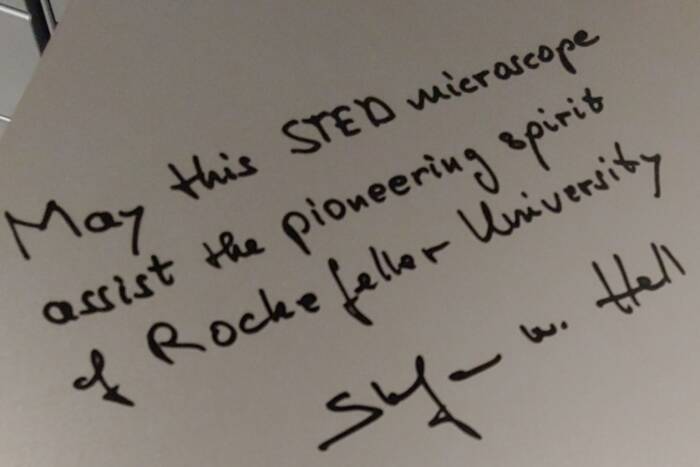 May this STED microscope
assist the pioneering spirit
of Rockefeller University
Stefan W. Hell